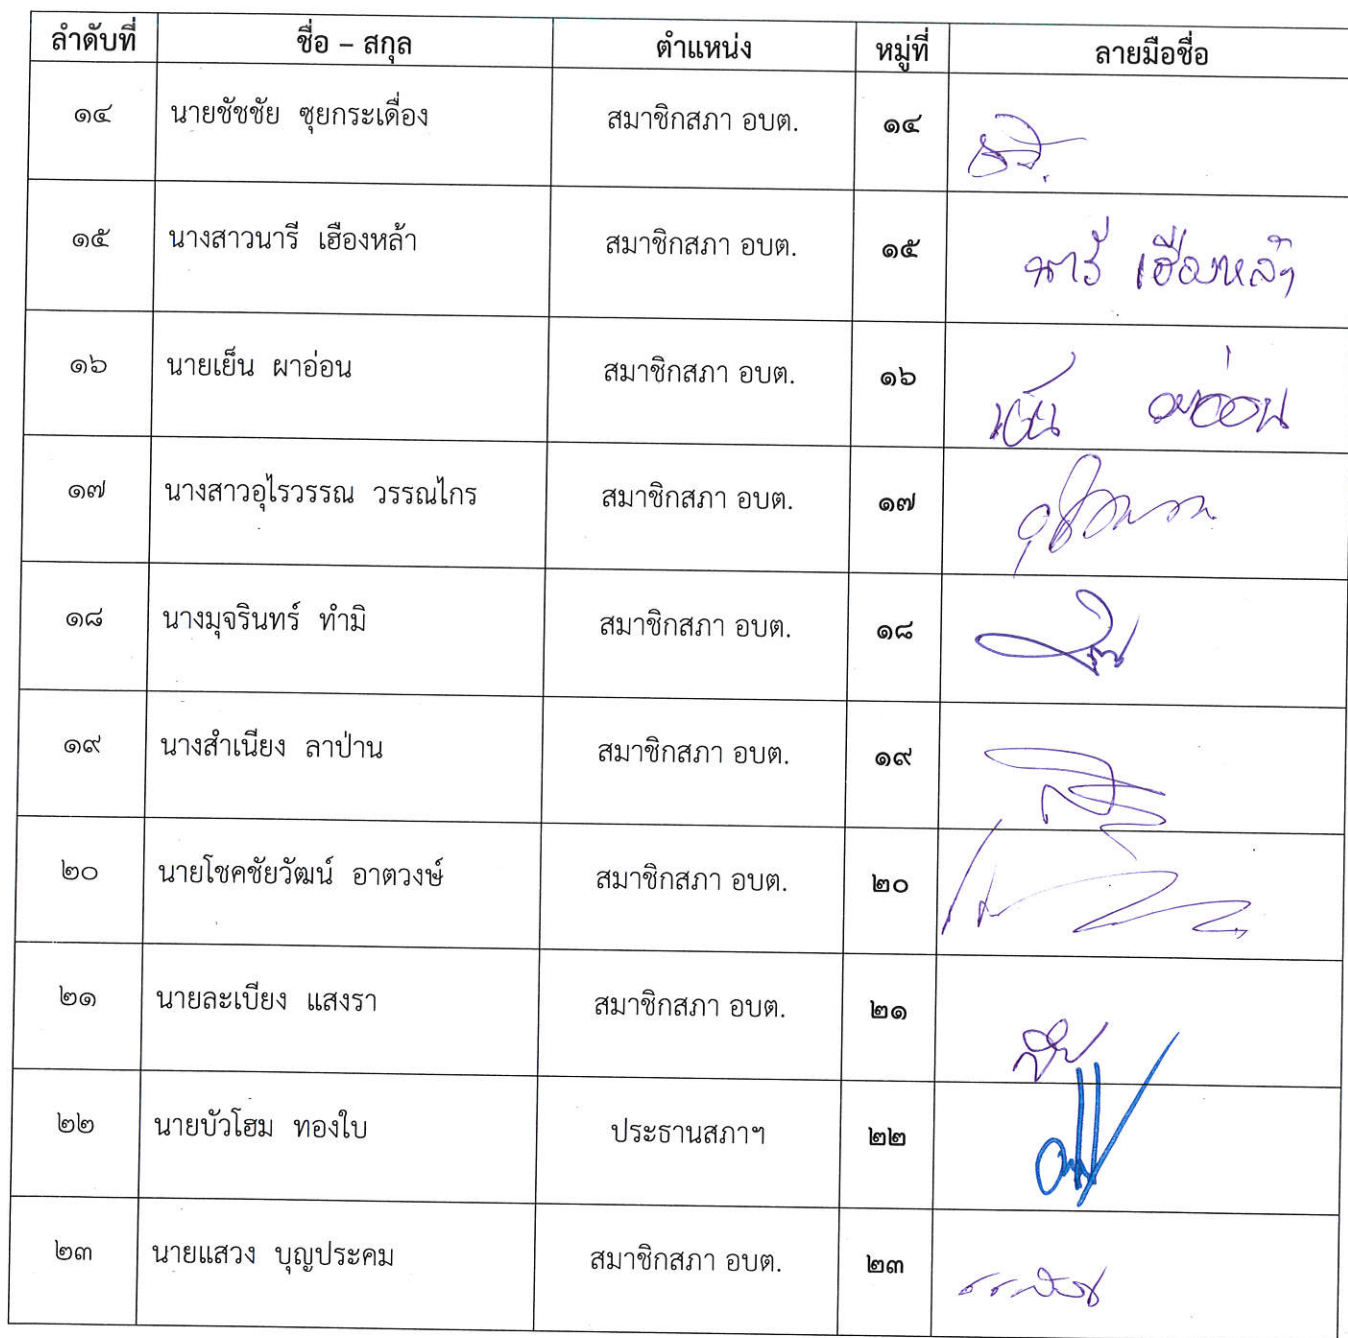 ลำดับที่ ชื่อ – สกุล ตำแหน่ง หมู่ที่ ลายมือชื่อ
๑๔ นายชัชชัย ซุยกระเดื่อง สมาชิกสภา อบต. ๑๔
๑๕ นางสาวนารี เฮืองหล้า สมาชิกสภา อบต. ๑๕ นารี เฮืองหล้า
๑๖ นายเย็น ผาอ่อน สมาชิกสภา อบต. ๑๖ เย็น ผาอ่อน
๑๗ นางสาวอุไรวรรณ วรรณไกร สมาชิกสภา อบต. ๑๗
๑๘ นางมุจรินทร์ ทำมิ สมาชิกสภา อบต. ๑๘
๑๙ นางสำเนียง ลาป่าน สมาชิกสภา อบต. ๑๙
๒๐ นายโชคชัยวัฒน์ อาตวงษ์ สมาชิกสภา อบต. ๒๐
๒๑ นายละเบียง แสงรา สมาชิกสภา อบต. ๒๑
๒๒ นายบัวโฮม ทองใบ ประธานสภาฯ ๒๒
๒๓ นายแสวง บุญประคม สมาชิกสภา อบต. ๒๓